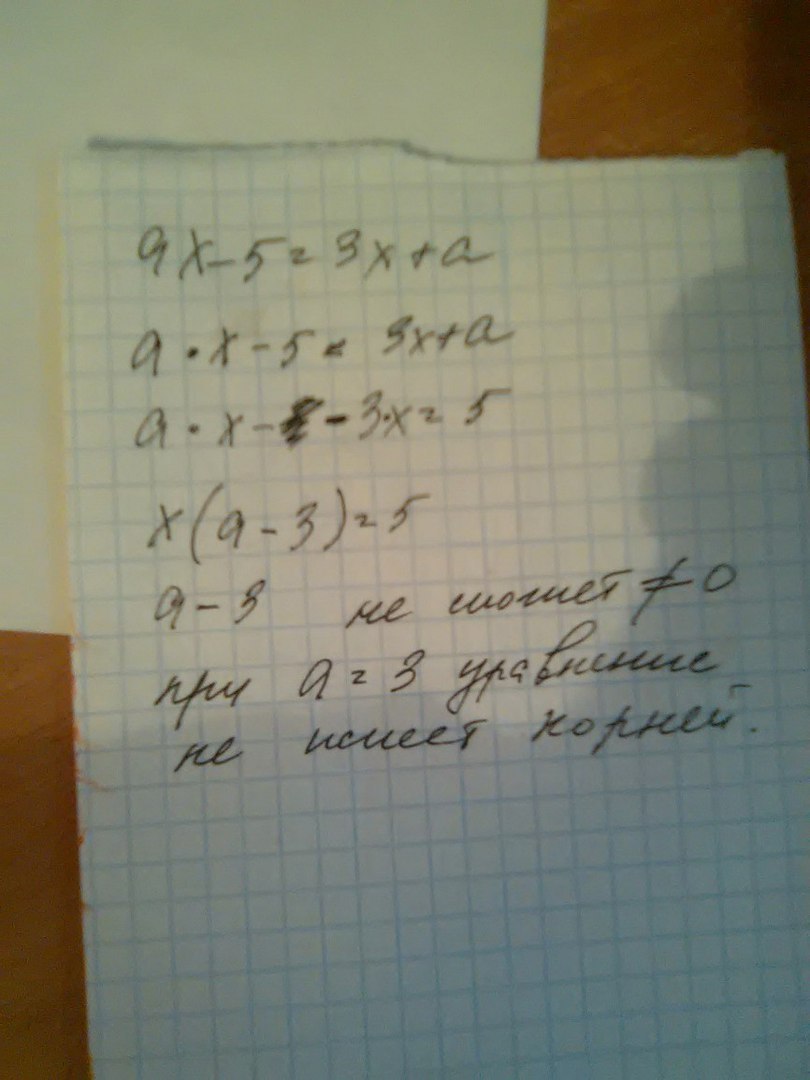 ax-5=3x+a
a·x-5=3x+a
a·x--3·x=5
x(a-3)=5
a-3 не может ≠0
при a=3 уравнение
не имеет корней.